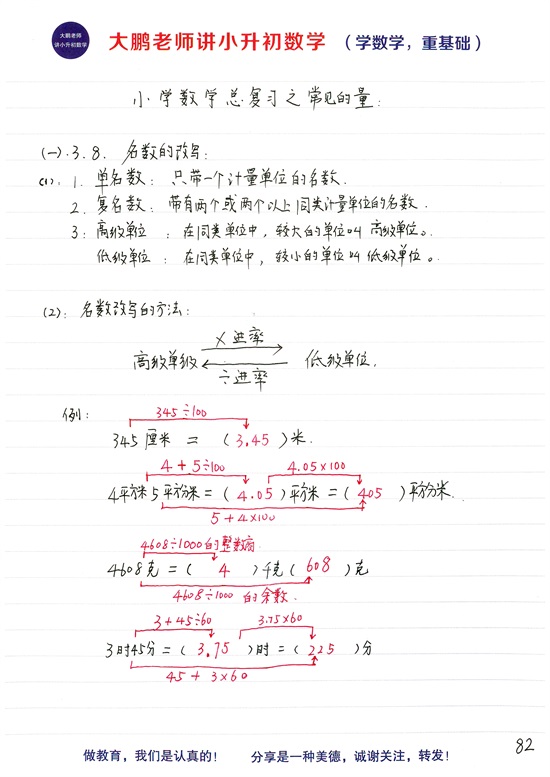 大鹏老师
讲小升初数学
大鹏老师讲小升初数学 （学数学，重基础）
小学数学总复习之常见的量：
(一).3.8. 名数的改写：
(1). 1. 单名数：只带一个计量单位的名数.
2. 复名数：带有两个或两个以上同类计量单位的名数.
3：高级单位 ：在同类单位中，较大的单位叫高级单位。
低级单位 ：在同类单位中，较小的单位叫低级单位。
(2)：名数改写的方法：
×进率
高级单级 低级单位.
÷进率
例：
345÷100
345厘米 = (3.45)米.
4+5÷100 4.05×100
4平方米5平方分米=(4.05)平方米=(405)平方分米.
5+4×100
4608÷1000的整数商
4608克=( 4 )千克(608)克
4608÷1000的余数.
3+45÷60 3.75×60
3时45分=(3.75)时=(225)分
45+3×60
82
做教育，我们是认真的！ 分享是一种美德，诚谢关注，转发！